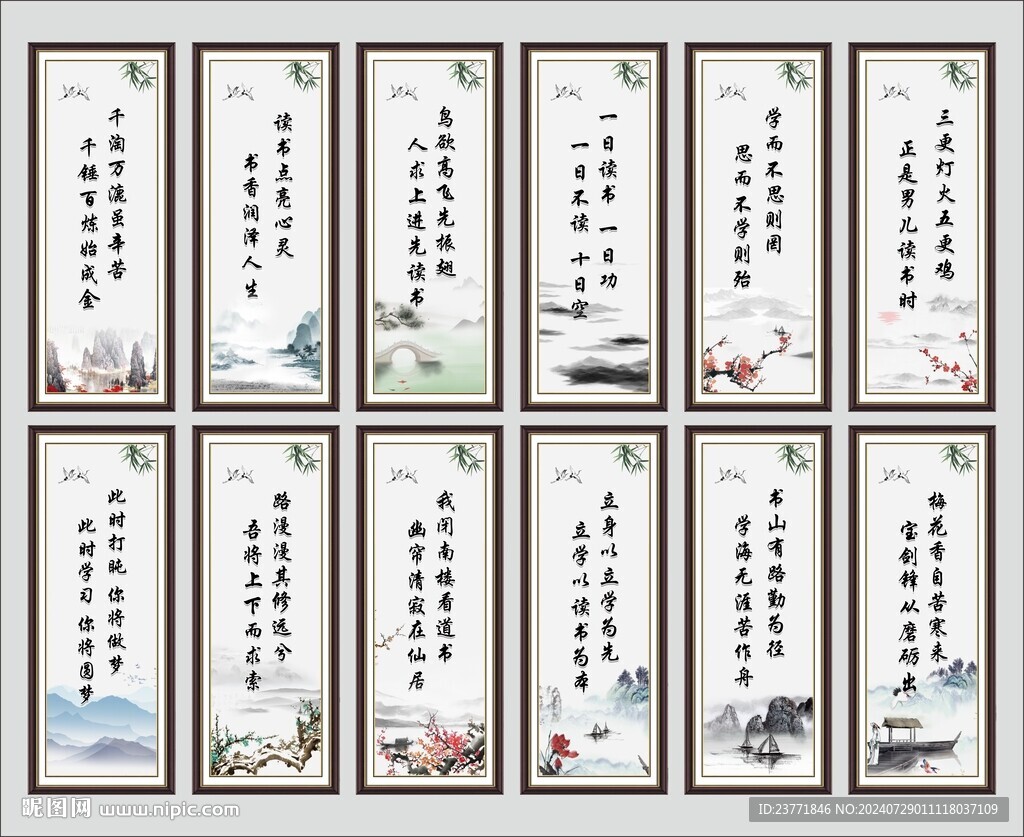 千淘万漉虽辛苦
千锤百炼始成金
读书点亮心灵
书香润泽人生
鸟欲高飞先振翅
人求上进先读书
一日读书 一日功
一日不读 十日空
学而不思则罔
思而不学则殆
三更灯火五更鸡
正是男儿读书时
此时打盹 你将做梦
此时学习 你将圆梦
路漫漫其修远兮
吾将上下而求索
我闭南楼看道书
幽帘清寂在仙居
立身以立学为先
立学以读书为本
书山有路勤为径
学海无涯苦作舟
梅花香自苦寒来
宝剑锋从磨砺出
昵图网 www.nipic.com
ID:23771846 NO:20240729011118037109